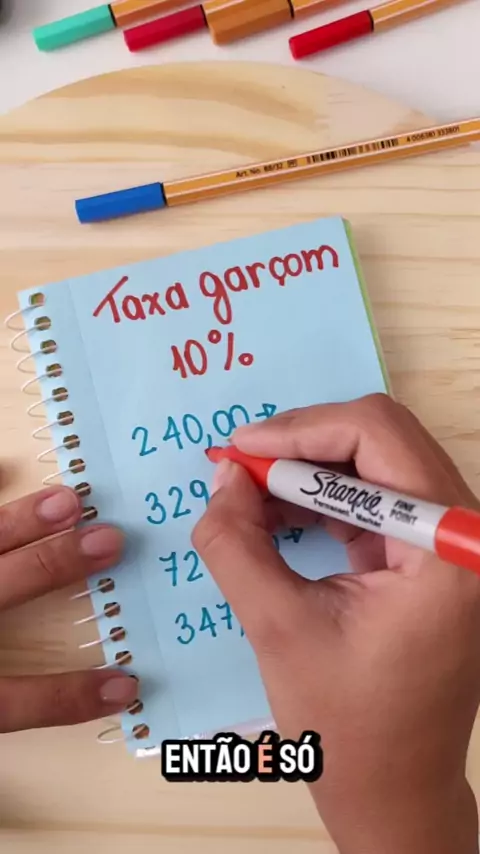 Art. No. 88/32
Taxa garçom
10%
240,00→
329
72
347,
Sharpie
FINE
POINT
Permanent Marker
ENTÃO É SÓ